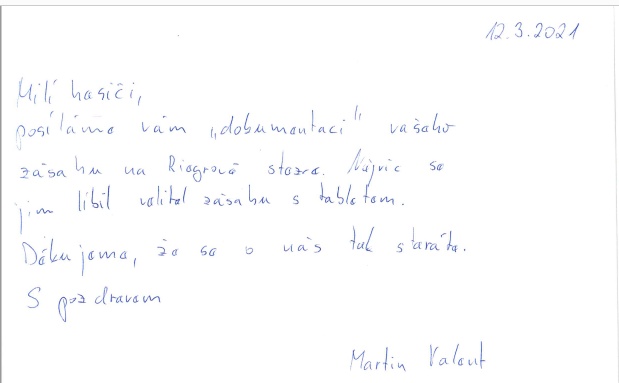 12.3.2021
Milí hasiči,
posíláme vám „dokumentaci" vašeho
zásahu na Riegrově stezce. Nejvíc se
jim líbil velitel zásahu s tabletem.
Děkujeme, že se o nás tak staráte.
S pozdravem
Martin Valent